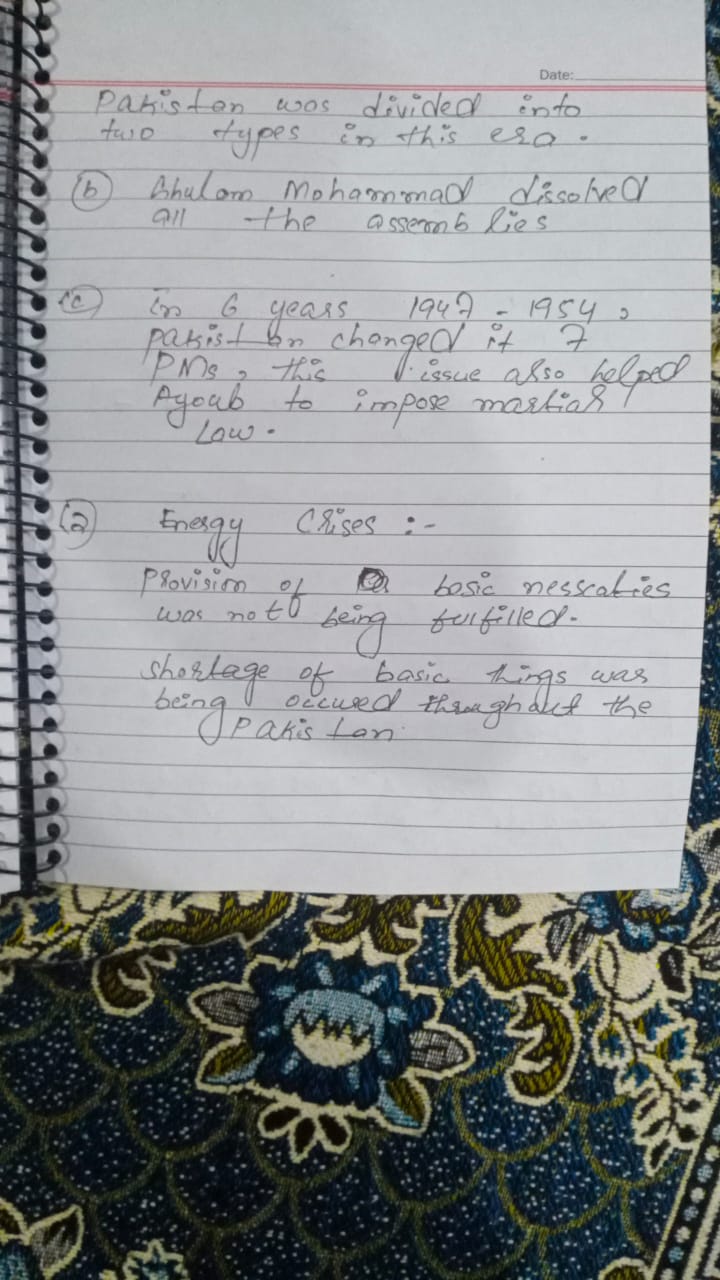 Date:
Pakistan was divided into
two types in this era.
(b) Ghulam Mohammad dissolved
all the assemb lies
(c) in 6 years 1947 - 1954,
pakistan changed it 7
PMs, this issue also helped
Ayoub to impose martial
Law.
(2) Energy Crises :-
Provision of basic nesscaties
was not being fulfilled.
shortage of basic things was
being occured throughout the
Pakistan